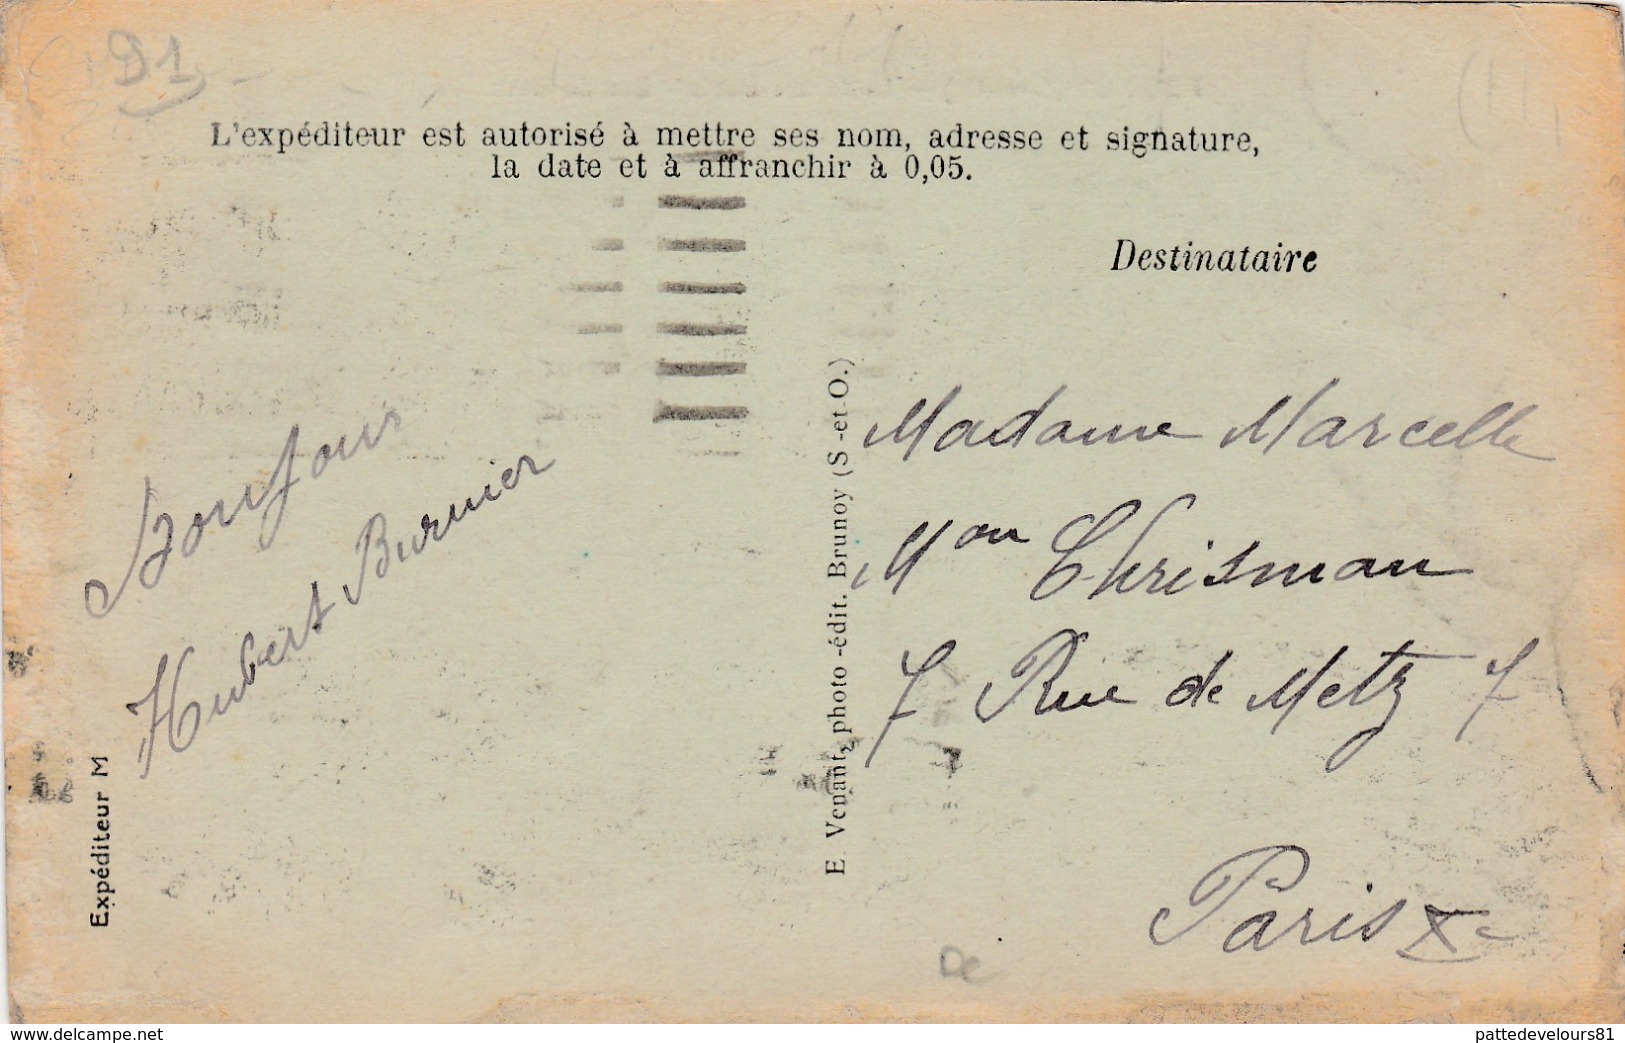 D1
L'expéditeur est autorisé à mettre ses nom, adresse et signature,
la date et à affranchir à 0,05.
Destinataire
Bonjour
Hubert Burnier
Expéditeur M
E. Venant, photo-édit. Brunoy (S-et-O.)
Madame Marcelle
Mon Chrisman
7 Rue de Metz 7
Paris Xe
De
www.delcampe.net
pattedevelours81